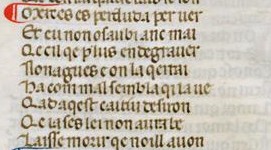 Merces es perduda per uer
Et eu non o saubi anc mai
Qe cil qe plus en degrauer
Non a ges e on la qerrai
Ha com mal sembla qi la ue
Qe aqest caitiu desiron
Qe ia ses lei non aura be
Laisse morir qe noill auon